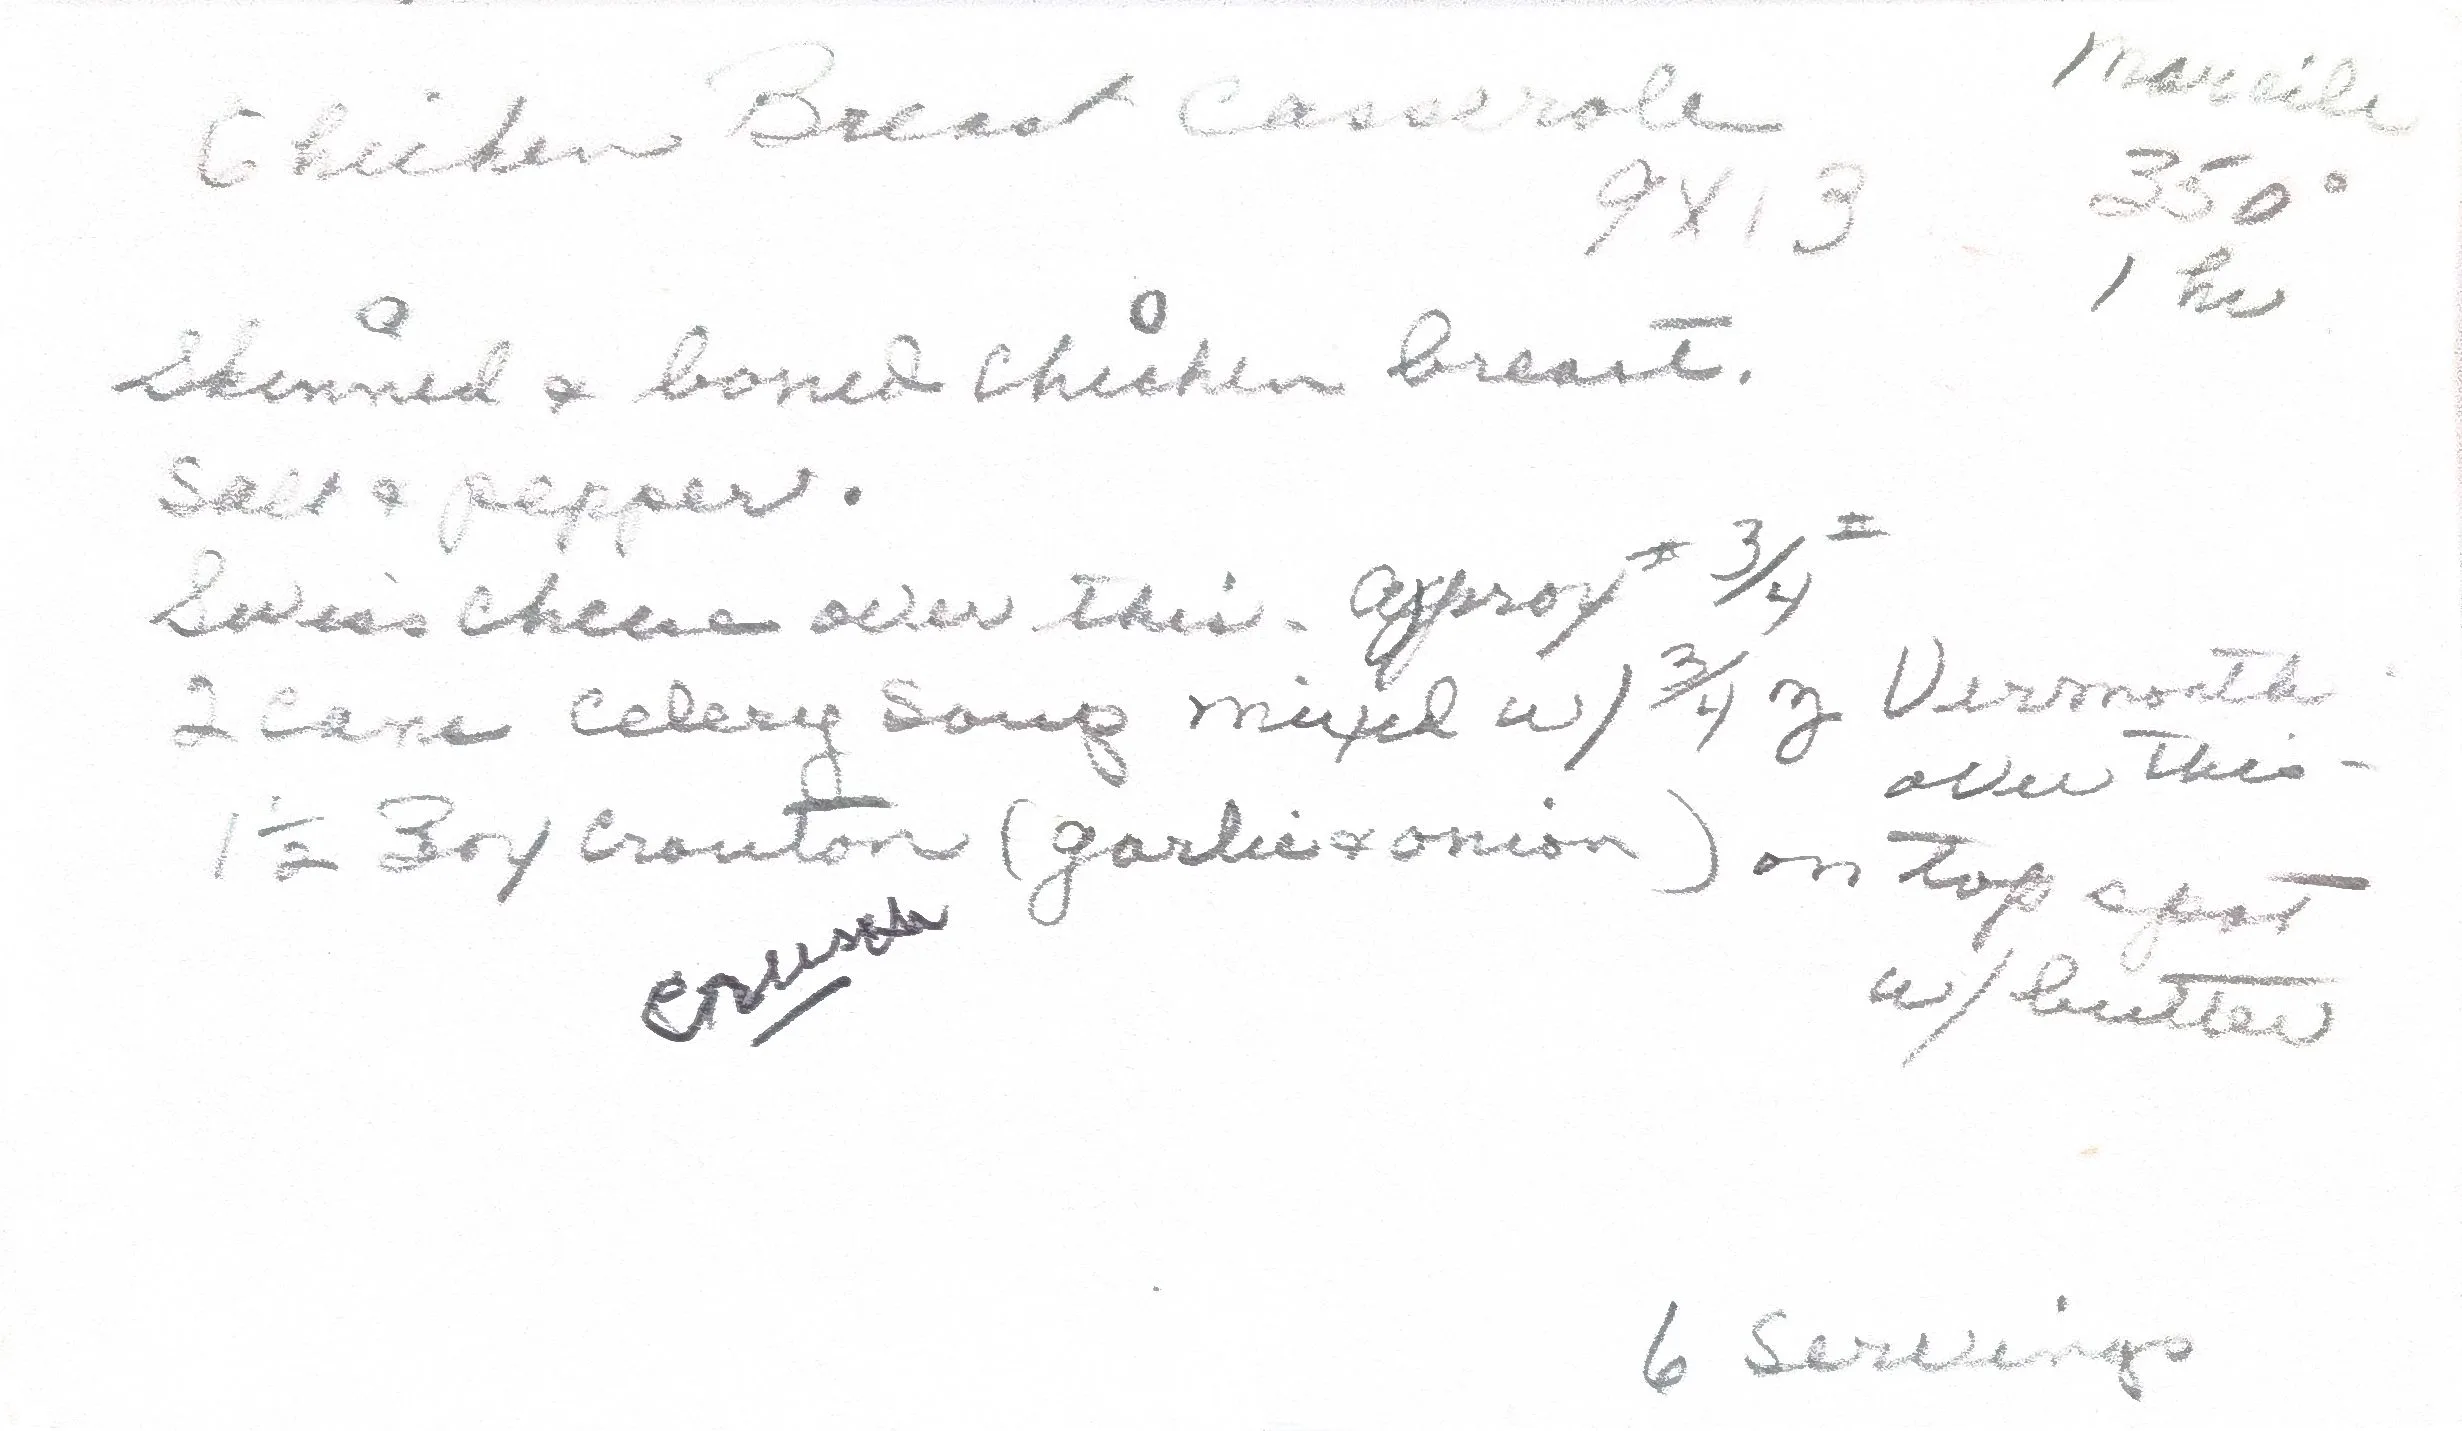 Chicken Breast Casserole
Marcile
9X13
350°
1 hr
Skinned & boned chicken breast.
Salt & pepper.
Swiss cheese over this. approx 3/4 #
2 cans Celery Soup mixed w/ 3/4 Vermouth
over this -
1 1/2 Box Crouton (garlic & onion) on top
crush
w/ butter
6 Servings